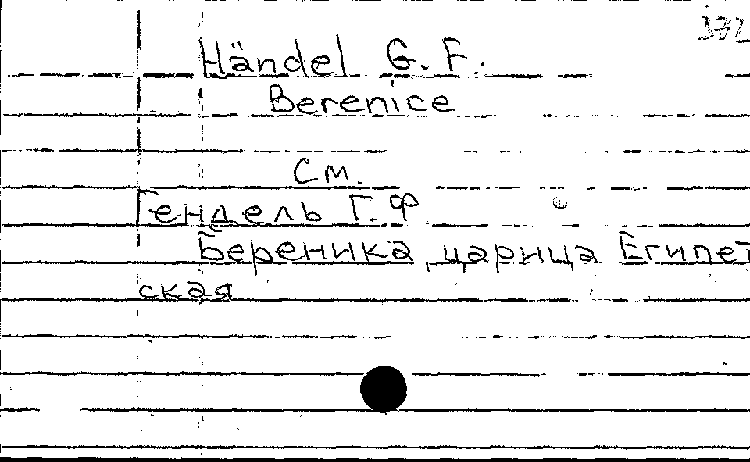 372
Händel G. F.
Berenice
См.
Гендель Г. Ф
Береника, царица Египет
ская